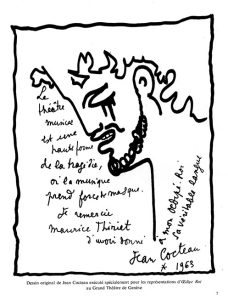 Le
théâtre
musical
est une
haute forme
de la tragédie,
où la musique
prend force de masque.
Je remercie
Maurice Thiriet
d'avoir donné
à mon Œdipe Roi
sa véritable langue
Jean Cocteau
* 1963
Dessin original de Jean Cocteau exécuté spécialement pour les représentations d'Œdipe Roi
au Grand Théâtre de Genève